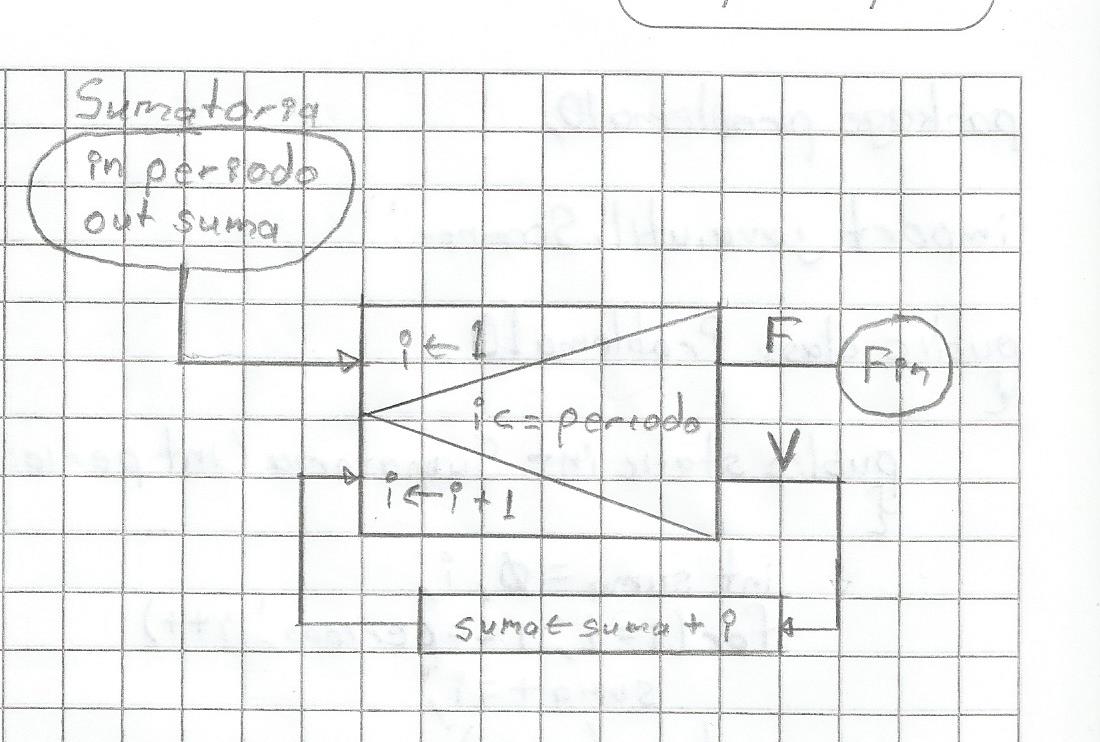 Sumatoria
in periodo
out suma
i ← 1
F
Fin
i <= periodo
V
i ← i + 1
suma ← suma + i